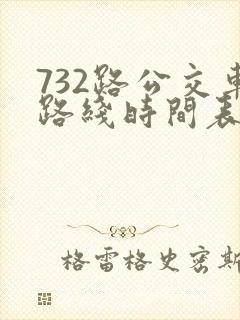 732路公交車
路綫時間表
格雷格史密斯